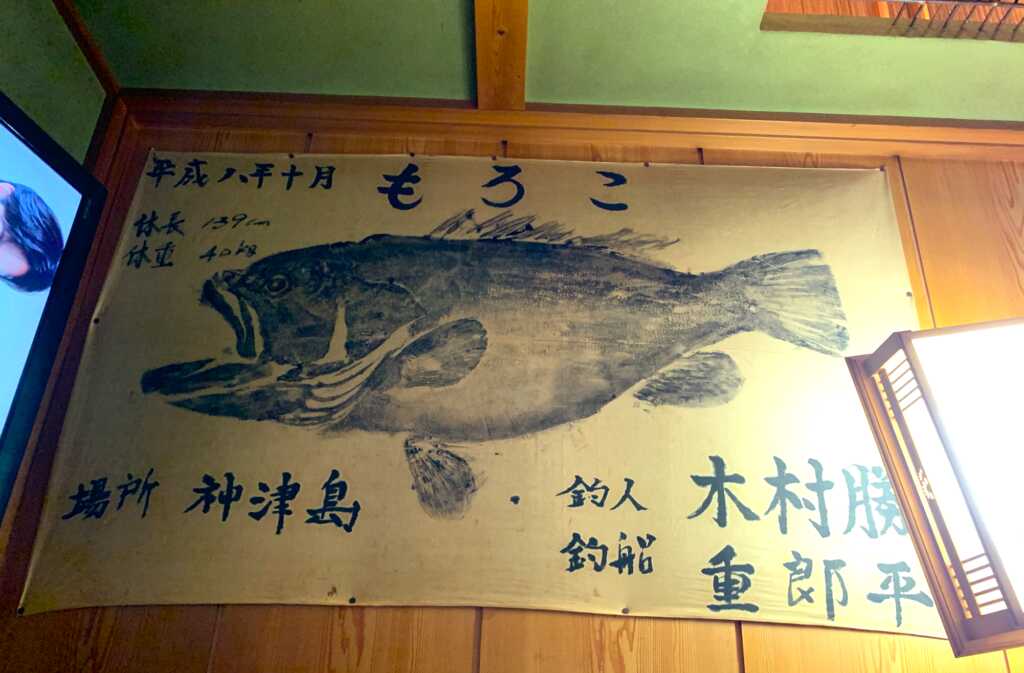 平成八年十月
もろこ
体長 139cm
体重 40kg
場所 神津島
釣人 木村勝
釣船 重郎平